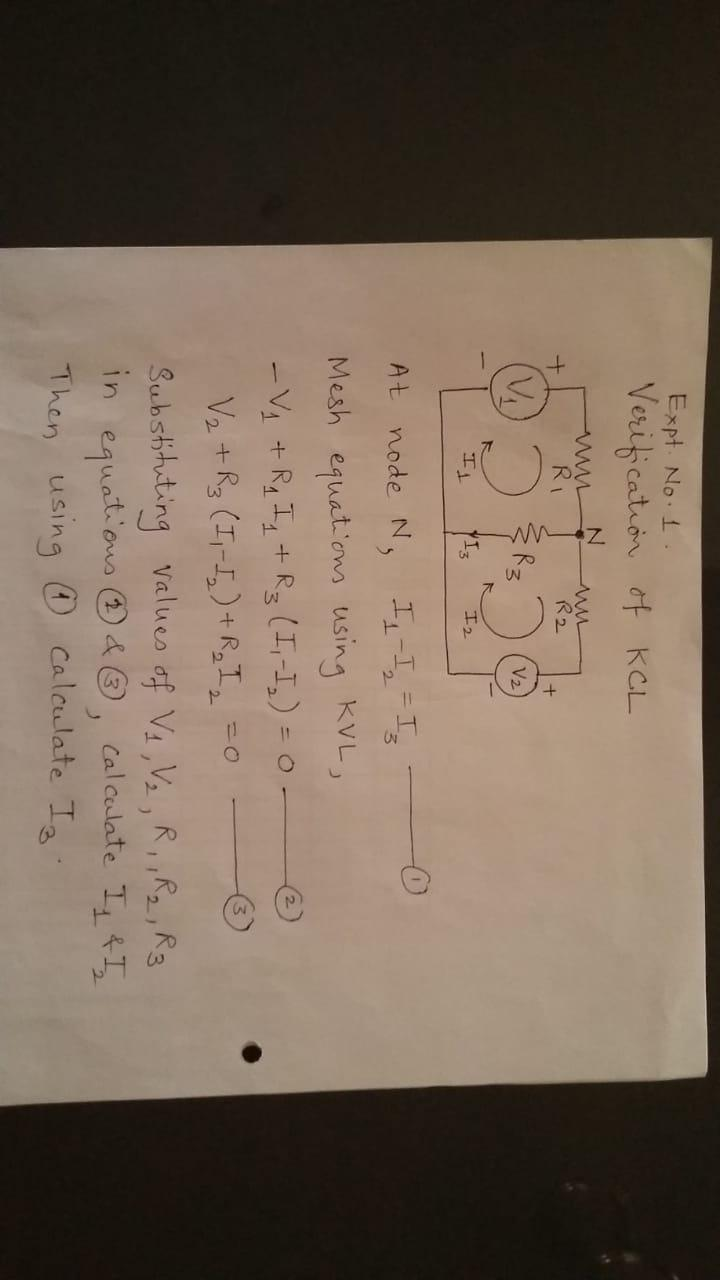 Expt. No. 1.
Verification of KCL
N
R1 R2
+ +
V1 R3 V2
- -
I1 I3 I2
At node N, I1-I2 = I3 ——— ①
Mesh equations using KVL,
-V1 + R1I1 + R3 (I1-I2) = 0 ——— ②
V2 + R3 (I1-I2) + R2I2 = 0 ——— ③
Substituting values of V1, V2, R1, R2, R3
in equations ② & ③, calculate I1 & I2
Then using ① calculate I3.